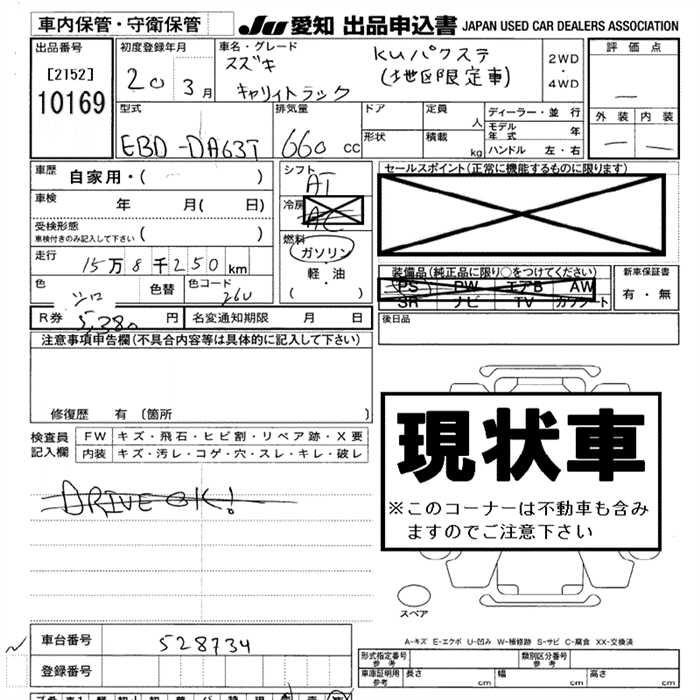 車内保管・守衛保管
JU 愛知 出品申込書 JAPAN USED CAR DEALERS ASSOCIATION
出品番号
[2152]
10169
初度登録年月
20年3月
車名・グレード
スズキ
キャリイトラック
KUパワステ
(地区限定車)
2WD
・
4WD
評価点
—
外装 内装
— —
型式
EBD-DA63T
排気量
660 cc
ドア
形状
定員 人
積載 kg
ディーラー・並行
モデル年式 年
ハンドル 左・右
車歴 自家用・( )
車検 年 月( 日)
受検形態
車検付きのみ記入して下さい ( )
走行 15万8千250km
色 シロ 色替 色コード 26U
R券 5,380円 名変通知期限 月 日
シフト AT
冷房 AC
燃料
ガソリン
・
軽・油
( )
セールスポイント(正常に機能するものに限ります)
装備品(純正品に限り○をつけてください)
PS PW エアB AW
SR ナビ TV カワシート
新車保証書
有・無
後日品
注意事項申告欄(不具合内容等は具体的に記入して下さい)
修復歴 有 〔箇所 〕
検査員記入欄
FW キズ・飛石・ヒビ割・リペア跡・X要
内装 キズ・汚レ・コゲ・穴・スレ・キレ・破レ
DRIVE OK!
現状車
※このコーナーは不動車も含み
ますのでご注意下さい
スペア
A-キズ E-エクボ U-凹み W-補修跡 S-サビ C-腐食 XX-交換済
車台番号 528734
登録番号
形式指定番号 参考
類別区分番号 参考
車庫証明用 参考 長さ cm 幅 cm 高さ cm